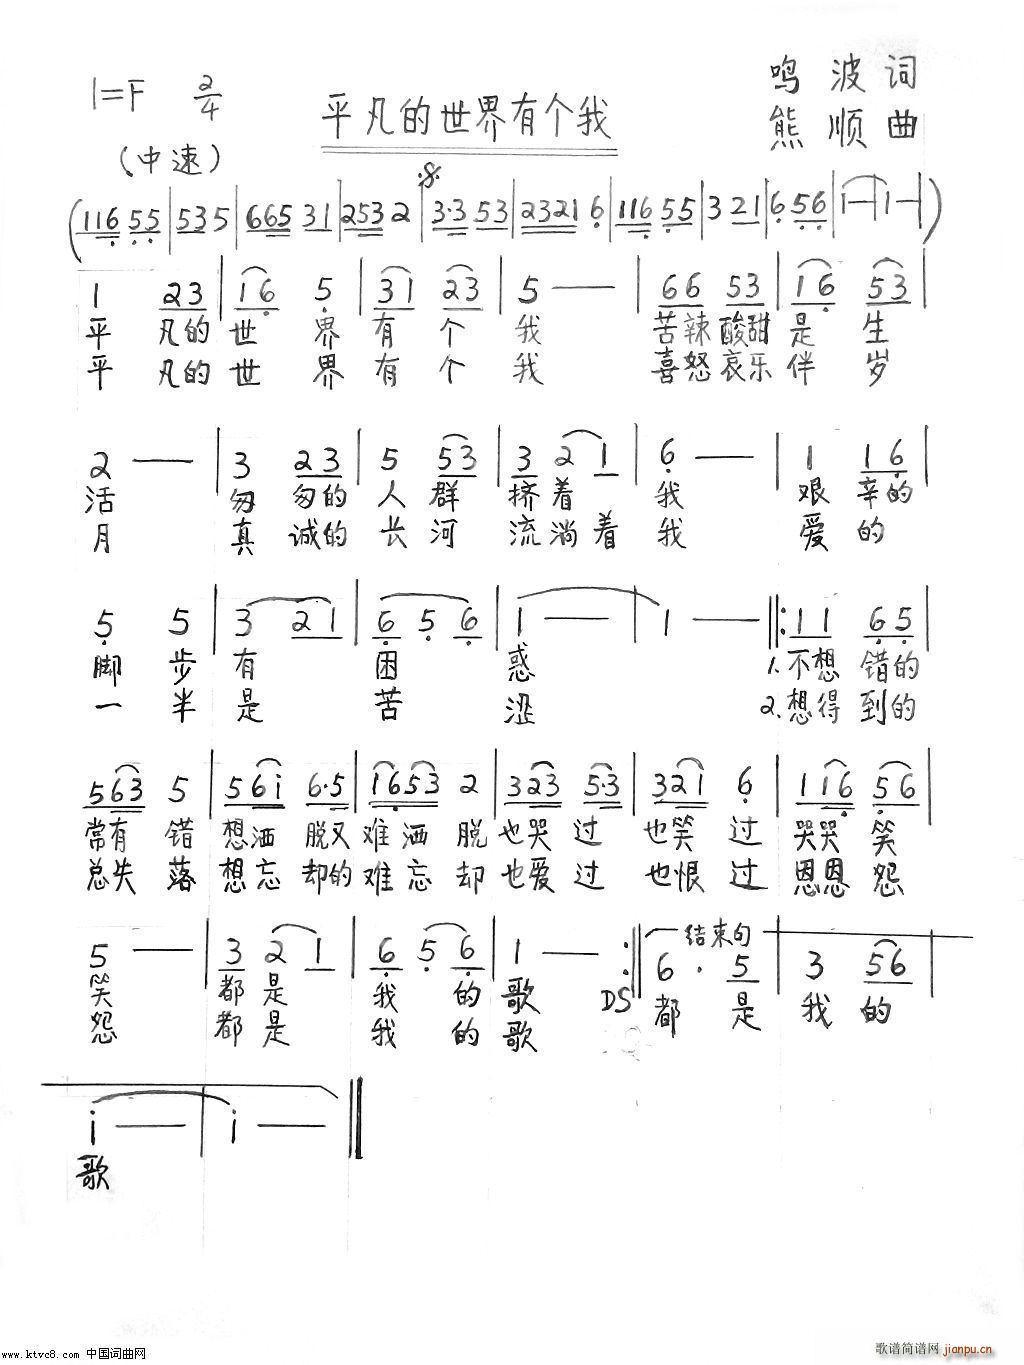 1=F 2/4
平凡的世界有个我
鸣波词
熊顺曲
(中速)
(116 55|535|665 31|253 2|3·3 53|2321 6|116 55|3 21|6 56|1—|1—|)
1 23|16 5|31 23|5 —|66 53|16 53|
平 凡的 世 界 有 个 我 苦辣 酸甜 是 生
平 凡的 世 界 有 个 我 喜怒 哀乐 伴 岁
2 —|3 23|5 53|3 2 1|6 —|1 16|
活 匆 匆的 人 群 挤 着 我 艰 辛的
月 真 诚的 长 河 流 淌 着 我 爱 的
5 5|3 21|6 5 6|1 —|1 —‖:11 65|
脚 步 有 困 惑 1.不想 错的
一 半 是 苦 涩 2.想得 到的
563 5|56i 6·5|1653 2|323 5·3|321 6|116 56|
常有 错 想洒 脱又 难洒 脱 也哭 过 也笑 过 哭哭 笑
总失 落 想忘 却的 难忘 却 也爱 过 也恨 过 恩恩 怨
结束句
5 —|3 2 1|6 5 6|1 — :‖6· 5|3 56|
笑 都 是 我 的 歌 DS 都 是 我 的
怨 都 是 我 的 歌
i —|i —‖
歌
www.ktvc8.com 中国词曲网
歌谱简谱网 jianpu.cn